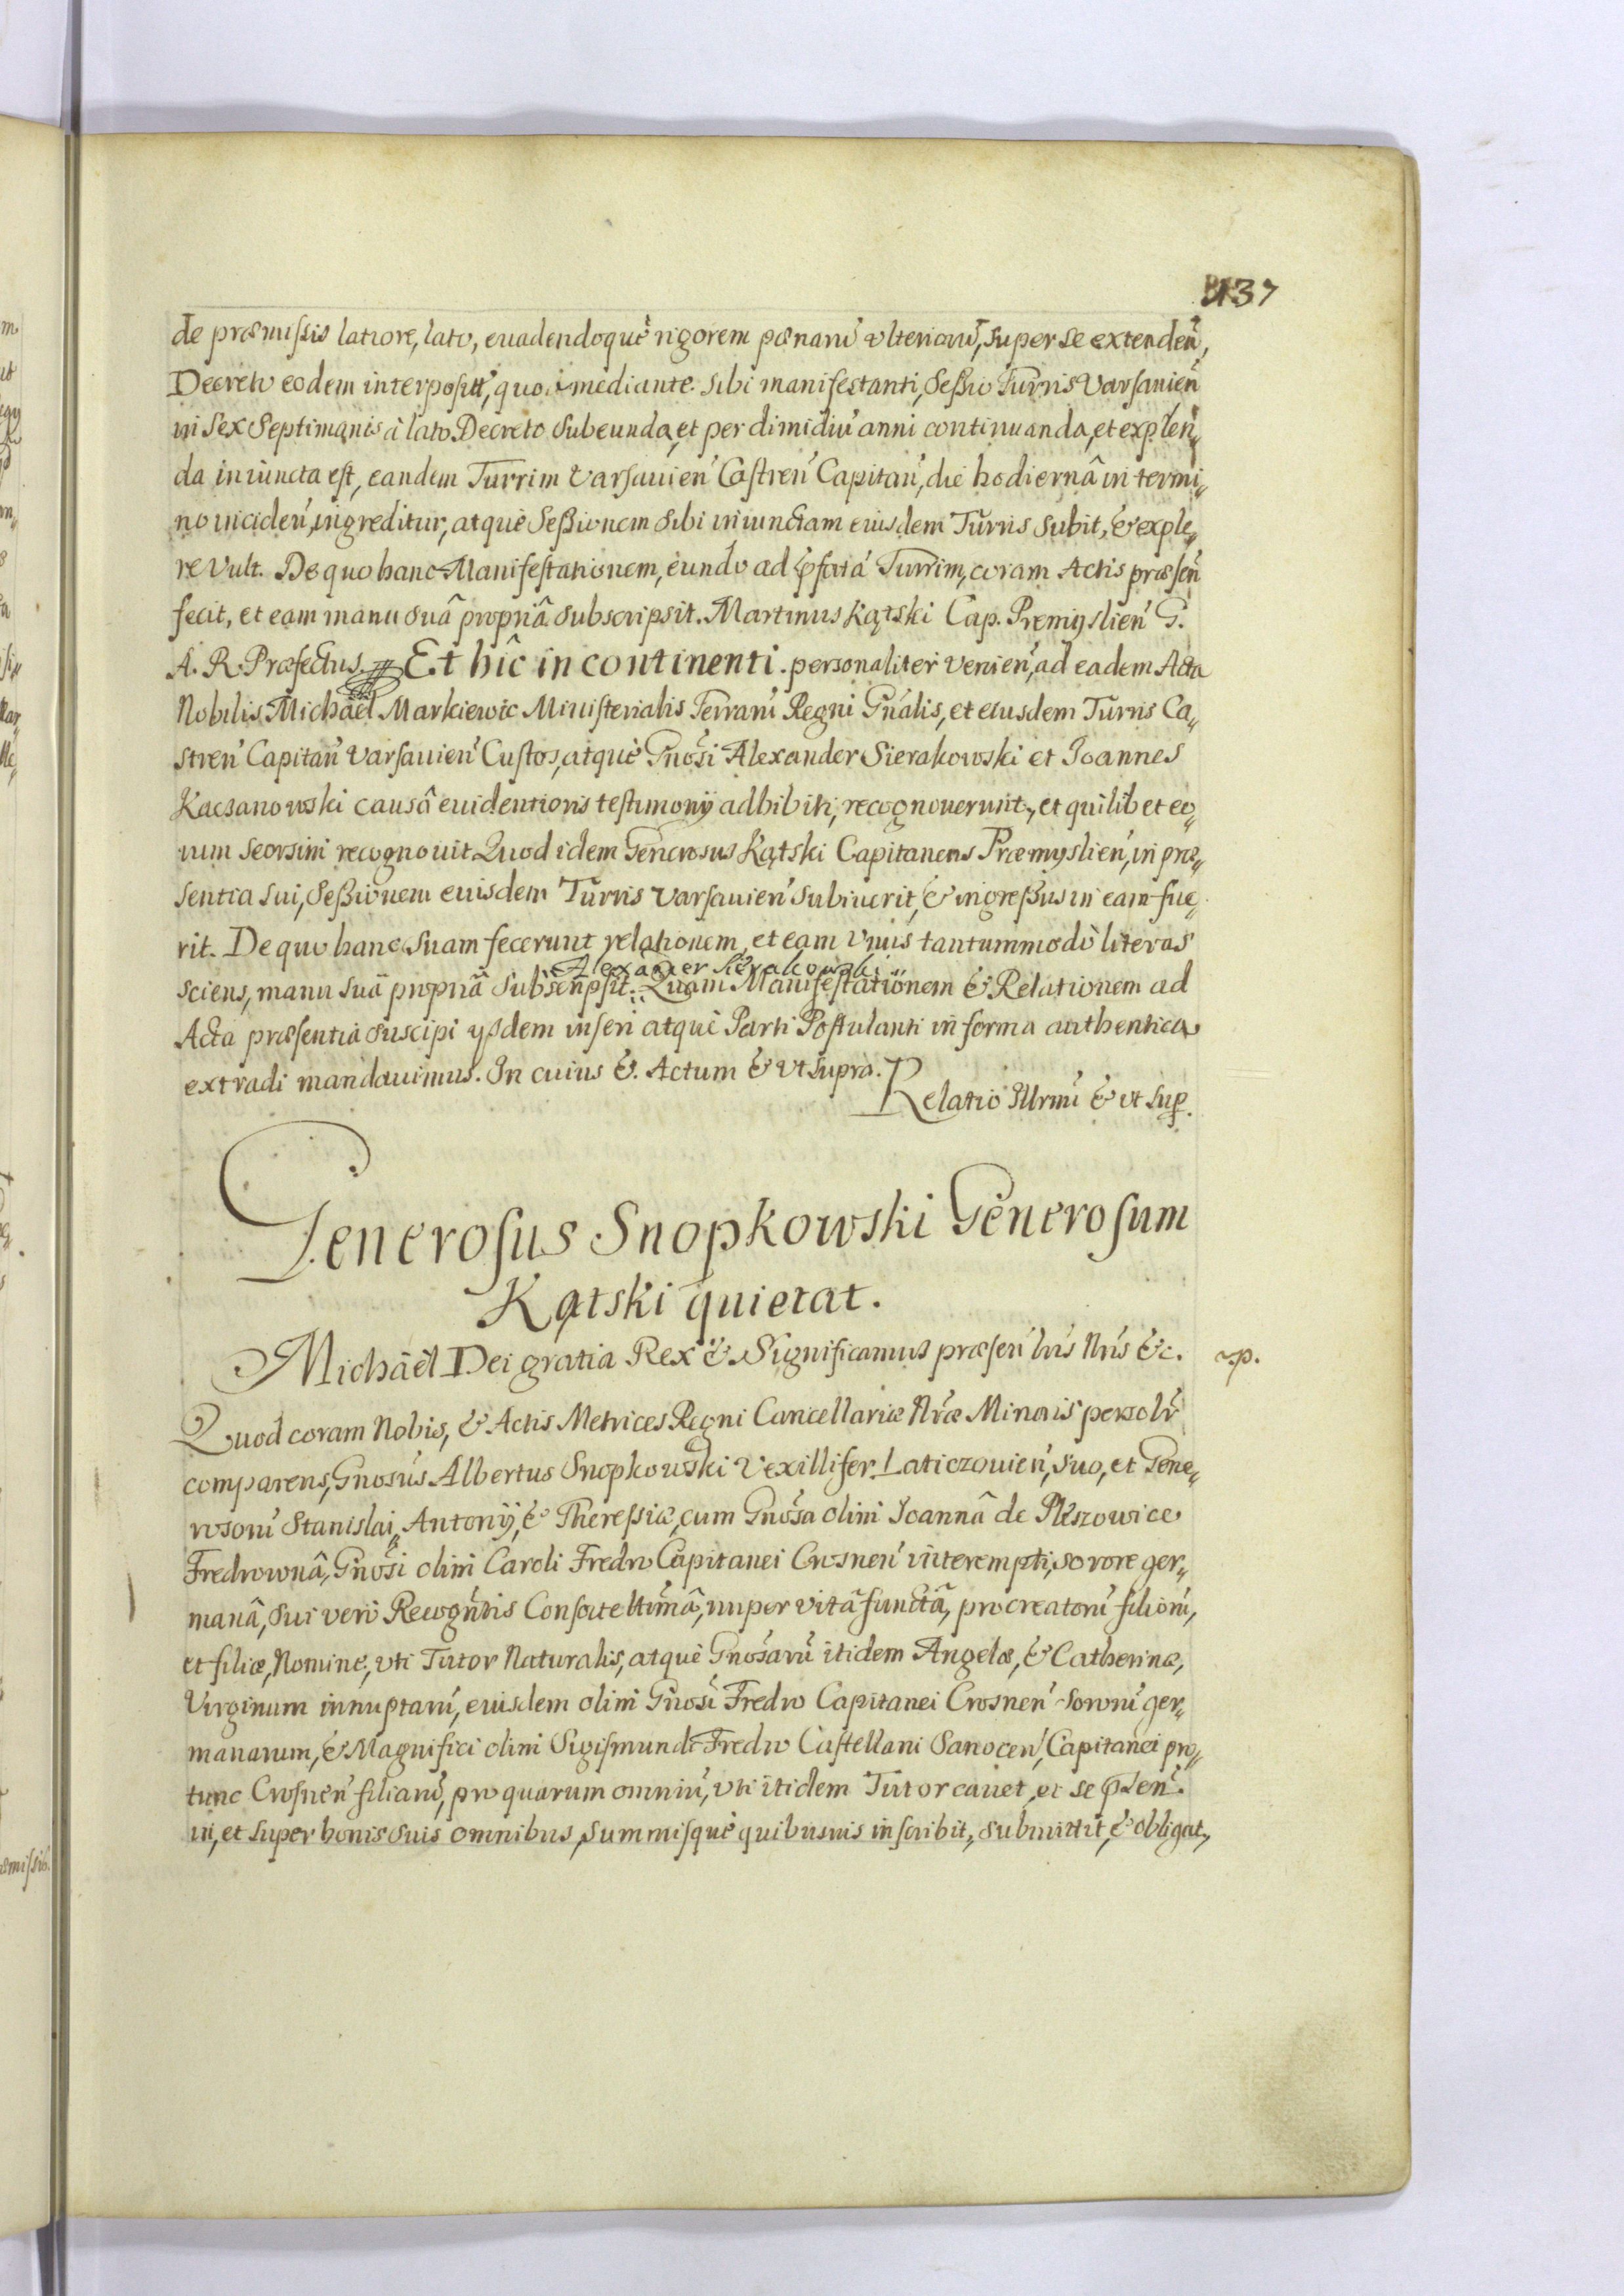 137
de præmissis latiore, lato, euadendoquè rigorem pœnarũ vlteriorũ, super se extendeñ,
Decreto eodem interposit, quo mediante sibi manifestanti, Seßio Turris Varsauieñ
in sex Septimanis à lato Decreto subeunda, et per dimidiũ anni continuanda, et explen„
da iniuncta est, eandem Turrim Varsauieñ Castreñ Capitañ, die hodiernâ in termi„
no incideñ, ingreditur, atquè Seßionem sibi iniunctam eiusdem Turris subit, & exple„
re vult. De quo hanc Manifestationem, eundo ad pfatã Turrim, coram Actis præseñ
fecit, et eam manu suâ propriâ subscripsit. Martinus Kątski Cap. Premyslieñ G.
A. R. Præfectus. Et hîc in continenti personaliter venieñ, ad eadem Acta
Nobilis Michaël Markiewic Ministerialis Terrarũ Regni Gñalis, et eiusdem Turris Ca„
streñ Capitañ Varsauieñ Custos, atquè Gñosi Alexander Sierakowski et Joannes
Kaczanowski causâ euidentioris testimonÿ adhibiti, recognouerunt, et quilibet eo„
rum seorsim recognouit Quod idem Generosus Kątski Capitaneus Præmyslieñ, in præ„
sentia sui, Seßionem eiusdem Turris Varsauieñ subiuerit, & ingreßus in eam fue„
rit. De quo hanc suam fecerunt relationem, et eam vnus tantummodò literas
Alexander Sierakowski
sciens, manu suâ propriâ subscripsit. Quam Manifestationem & Relationem ad
Acta præsentia suscipi ysdem inseri atquè Parti Postulanti in forma authentica
extradi mandauimus. In cuius &. Actum & vt supra.
Relatio Illrmi & vt sup.
Generosus Snopkowski Generosum
Kątski quietat.
Michaël Dei gratia Rex &. Significamus præseñ lris Nris &c.
Quod coram Nobis, & Actis Metrices Regni Cancellariæ Nræ Minoris persolr
comparens, Gnosus Albertus Snopkowski Vexillifer Laticzouieñ, suo, et Gene„
rosorũ Stanislai, Antonÿ, & Theressiæ, cum Gnosa olim Joannâ de Pleszowice
Fredrownâ, Gnosi olim Caroli Fredro Capitanei Crosneñ interempti, sorore ger„
manâ, sui verò Recogñtis Consorte ltimâ, nuper vitâ functâ, procreatorũ filiorũ,
et filiæ, Nomine, vti Tutor Naturalis, atquè Gnosarũ itidem Angelæ, & Catherinæ,
Virginum innuptarũ, eiusdem olim Gnosi Fredro Capitanei Crosneñ sororũ ger„
manarum, & Magnifici olim Sigismundi Fredro Castellani Sanoceñ, Capitanei pro„
tunc Crosneñ filiarũ, pro quarum omniũ, vti itidem Tutor cauet, et se
in, et super bonis suis omnibus, summisquè quibusuis inscribit, submittit, & obligat,